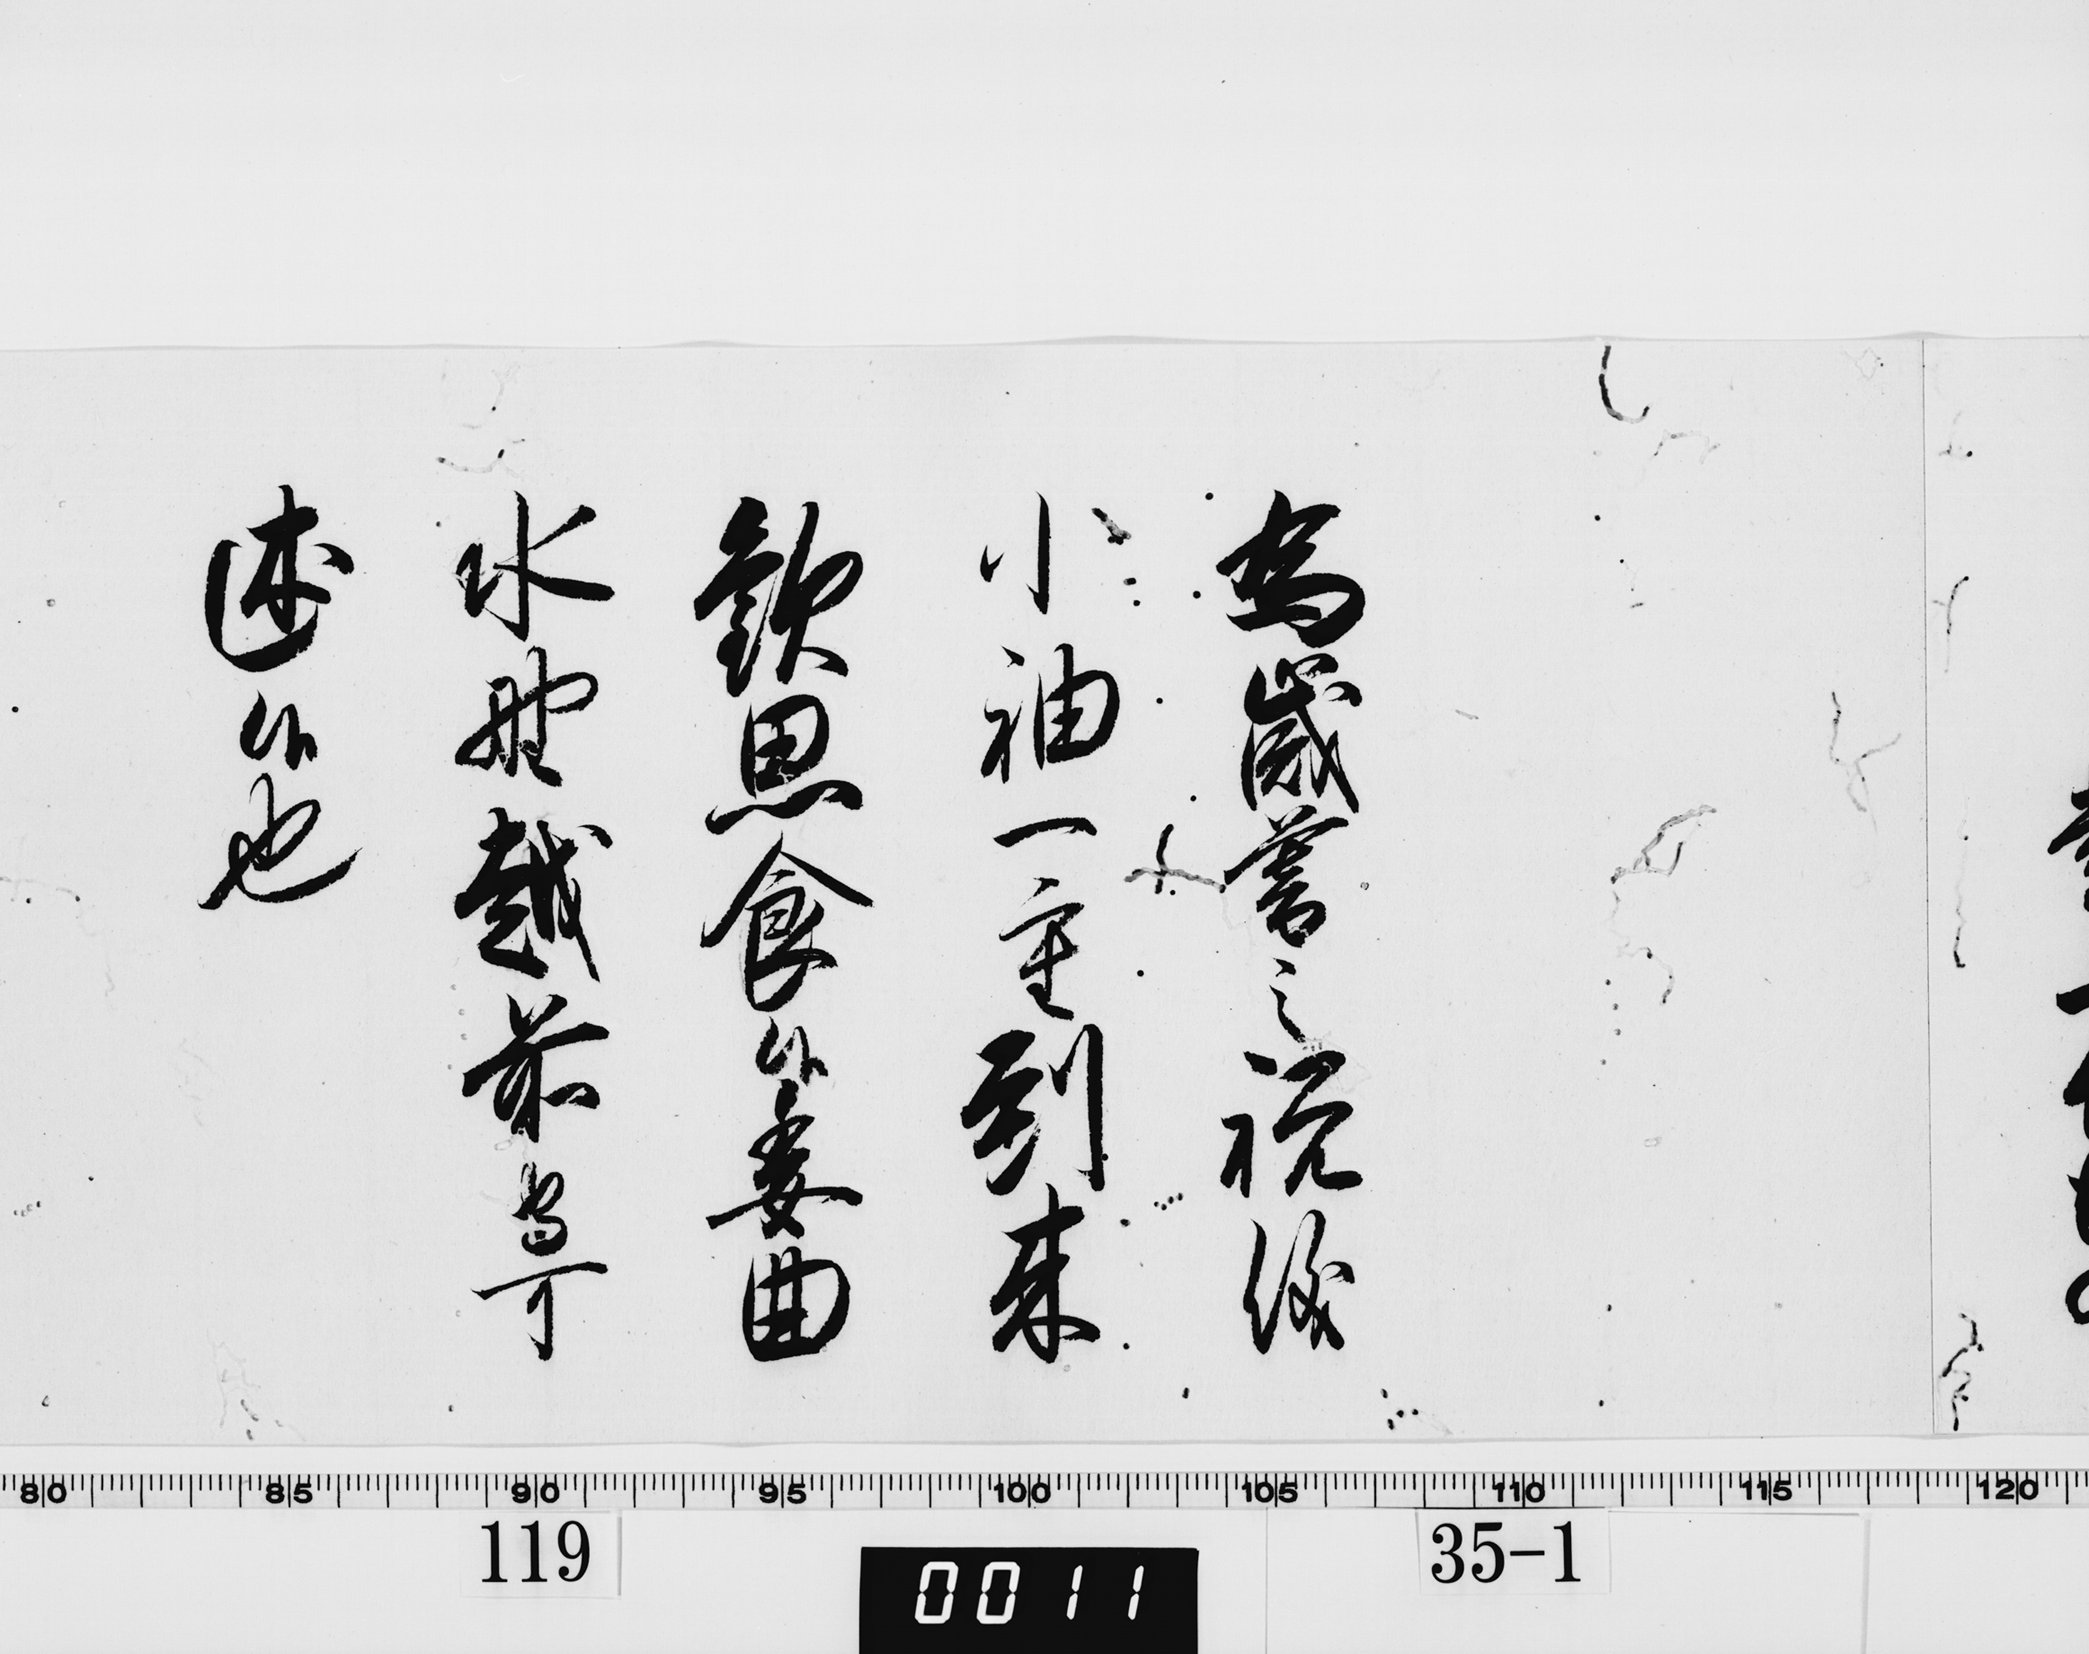 為歳暮之祝儀
小袖一重到来
歓思食候委曲
水野越前守可
述候也
80 85 90 95 100 105 110 115 120
119
0011
35-1